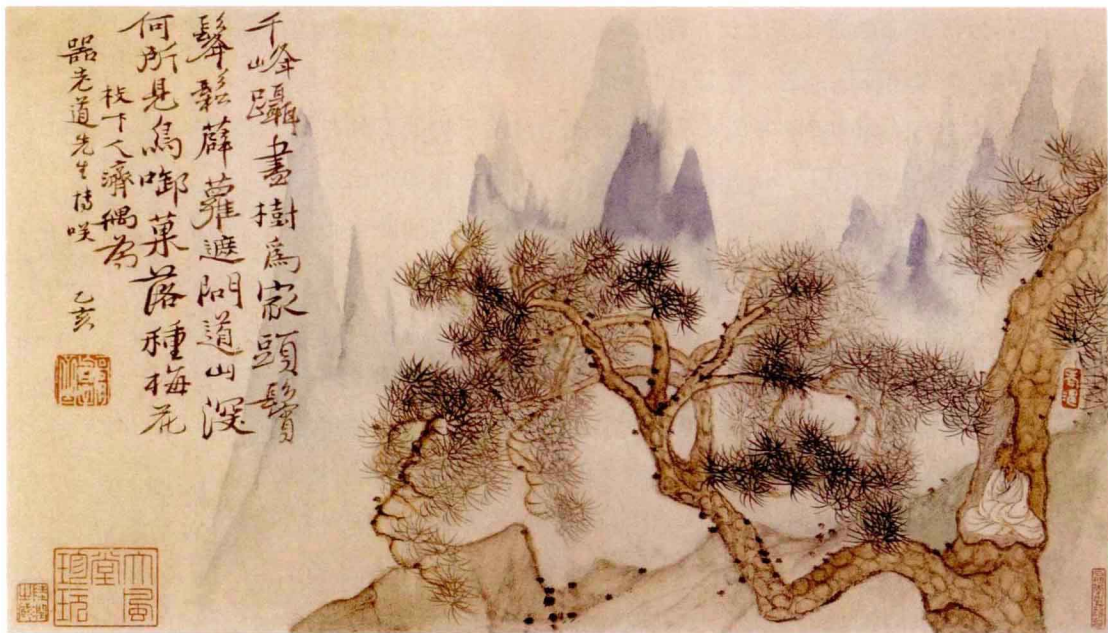 千峰躡盡樹為家頭鬢
髼鬆薜蘿遮問道山深
何所見鳥啣菓落種梅花
枝下人濟偶為
器老道先生博咲
乙亥
大風堂珍玩